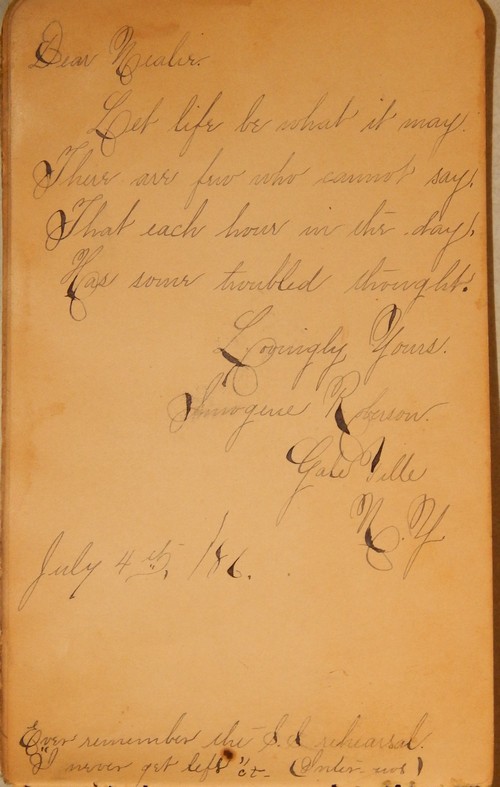 Dear Nealie.
Let life be what it may.
There are few who cannot say,
That each hour in the day,
Has some troubled thought.
Lovingly Yours.
Imogene Roberson.
Gale Ville
N.Y
July 4th, /86.
Ever remember the S.S rehearsal.
"I never get left" (Inter-nos)